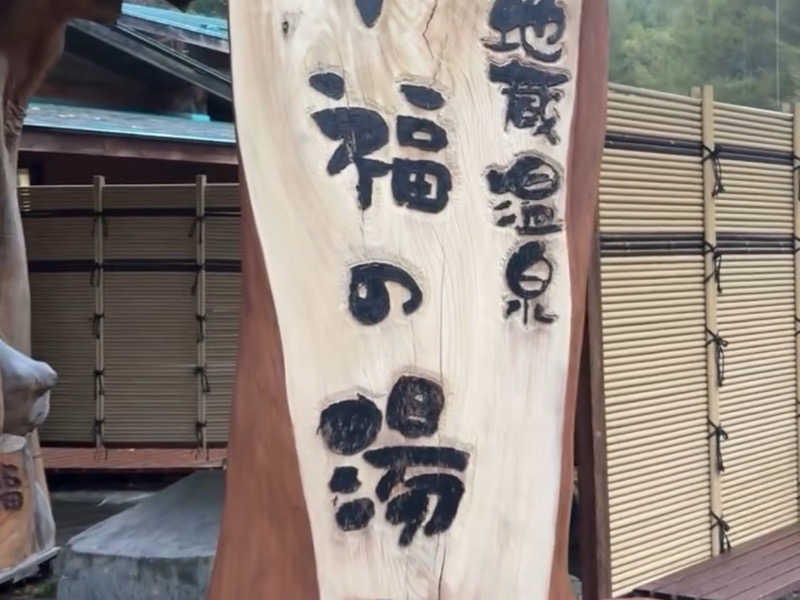 地蔵温泉
福の湯